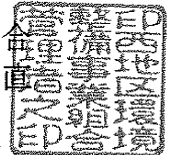 印西地区環境
整備事業組合
管理者之印
直